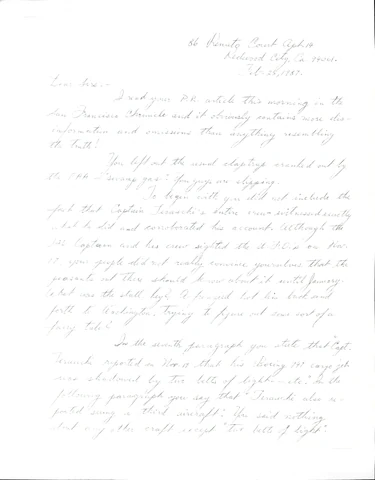 86 Court Apt 14
Redwood City, Ca.
Feb 28, 1987.
Dear Sirs:-
I read your P.R. article this morning in the
San Francisco Chronicle and it obviously contains more dis-
information and nonsense than anything resembling
the truth!
You left out the usual claptrap cranked out by
the "swamp gas"! You guys are slipping.
To begin with you did not include the
fact that Captain Terauchi's entire crew witnessed exactly
what he did and corroborated his account. Although the
JAL Captain and his crew sighted the on Nov.
17 your people did not really convince yourselves that the
peasants out there should know about it until January.
What was the stall boys? A fairy tale back and
forth to Washington, trying to figure out some sort of a
fairy tale?
In the seventh paragraph you state that "Capt.
Terauchi reported on Nov. 17 that his Boeing 747 cargo jet
was shadowed by two belts of lights - etc." In the
following paragraph you say that "Terauchi also re-
ported seeing a third aircraft." He said nothing
about any other craft except "two belts of light".